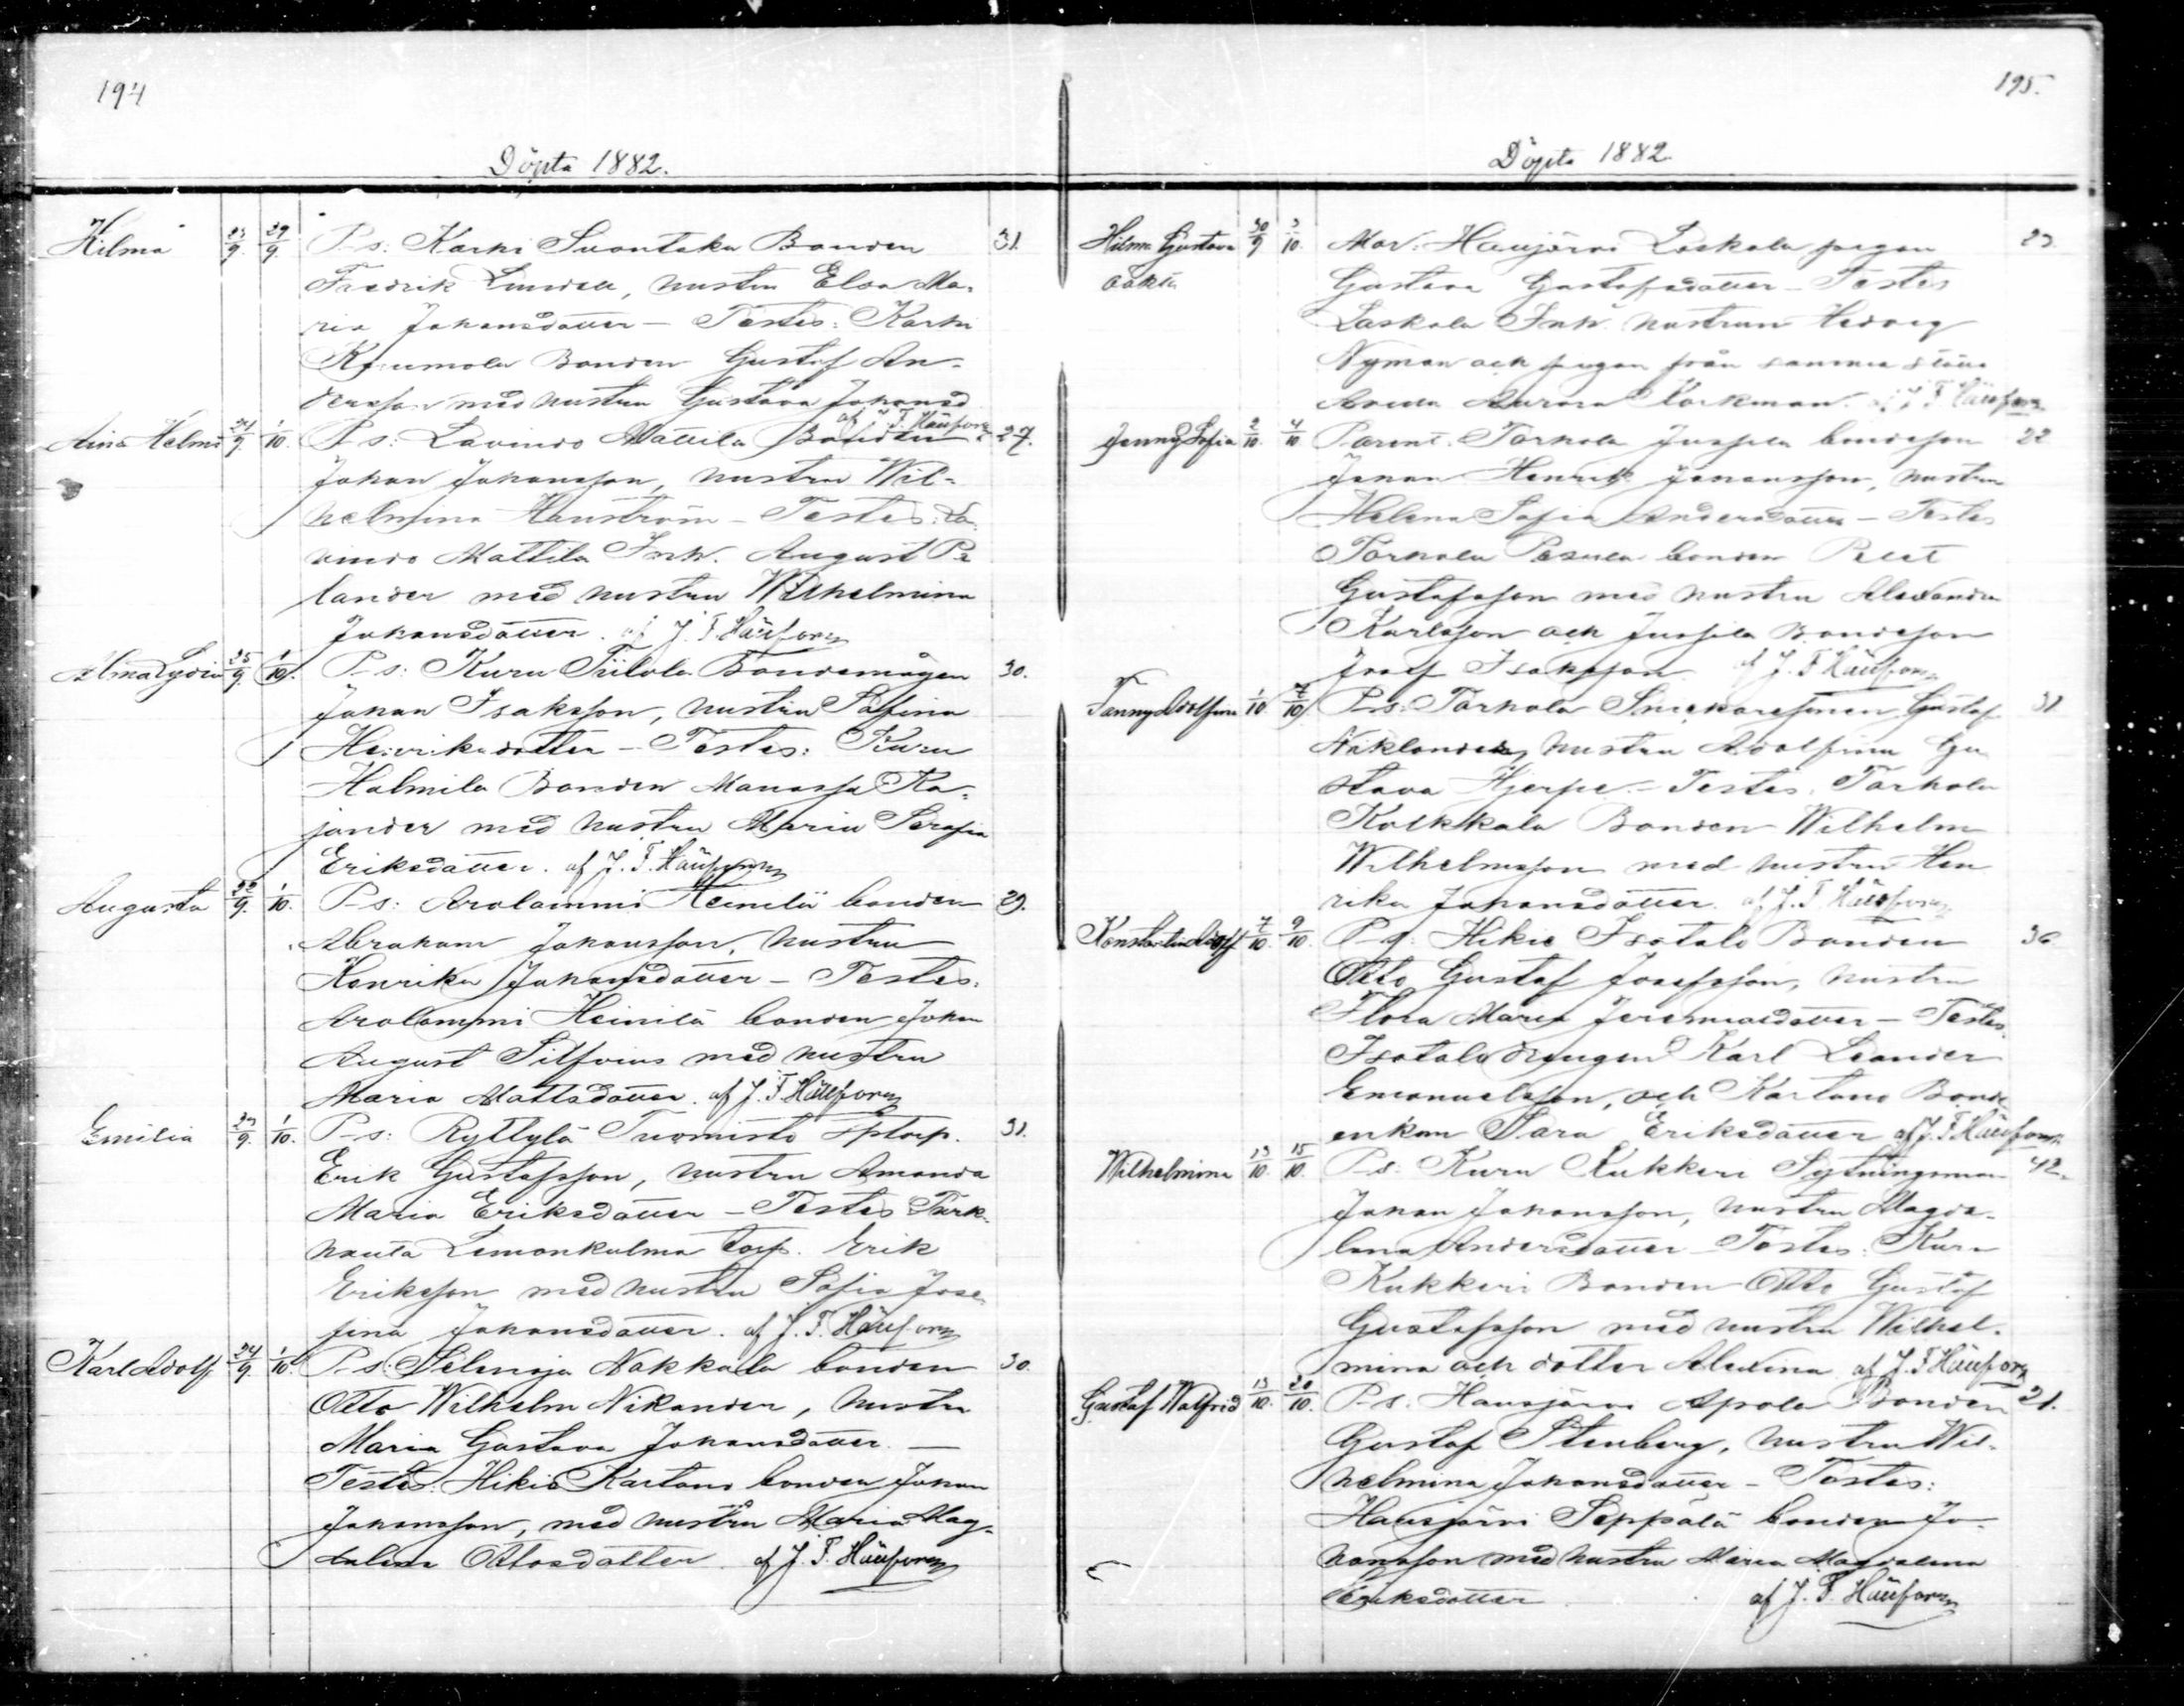 194
Döpta 1882.
Hilma 23/9. 29/9. P-s: Karhi Suontaka Bonden 31.
Fredrik Lundell, hustru Elva Ma-
ria Johansdotter – Testes: Karhi
Bonden Gustaf An-
dersson med hustru Gustava Johansd.
af J. F. Häufors
Aina Helmi 21/9. 1/10. P-s: Lavindo Mattila Bonden 27.
Johan Johansson, hustru Wil-
helmina Hanström – Testes: La-
vindo Mattila Inh. August Pe
lander med hustru Wilhelmina
Johansdotter. af J. F. Häufors
Alma Lydia 25/9. 1/10. P-s: Kuru Tiilola Bondemågen 30.
Johan Isaksson, hustru Sofina
Henriksdotter – Testes: Kuru
Halmila Bonden Manassa Ka-
jander med hustru Maria Serafia
Eriksdotter. af J. F. Häufors
Augusta 22/9. 1/10. P-s: Arolammi Heinilä bonden 29.
Abraham Johansson, hustru
Henrika Johansdotter – Testes.
Arolammi Heinilä bonden Johan
August Silfvius med hustru
Maria Mattsdotter. af J. F. Häufors
Emilia 23/9. 1/10. P-s: Ryttylä Tuomisto 31.
Erik Gustafsson, hustru Amanda
Maria Eriksdotter – Testes Turk-
hauta Lemonkulma torp. Erik
Eriksson med hustru Sofia Jose-
fina Johansdotter. af J. F. Häufors
Karl Adolf 24/9. 1/10. P-s: Selenoja Nakkala bonden 30.
Otto Wilhelm Nikander, hustru
Maria Gustava Johansdotter. –
Testes: Hikiä Kartano bonden Johan
Johansson, med hustru Maria Mag-
dalena Ottosdotter. af J. F. Häufors
195.
Döpta 1882.
Hilma Gustava 30/9 3/10. Mor: Hausjärvi Laskala pigan 23.
oäkta Gustava Gustafsdotter – Testes
Laskala Inh. hustrun Hedvig
Nyman och pigan från samma ställe
Aurora Korkman. af J. F. Häufors
Jenny Sofia 2/10. 4/10 Parent. Torhola Jussila bondeson 22
Johan Henrik Johansson, hustru
Helena Sofia Andersdotter – Testes
Torhola Pesula bonden
Gustafsson med hustru Alexandra
Karlsson och Jussila Bondeson
Josef Isaksson. af J. F. Häufors
Fanny Adolfina 1/10. 7/10. P-s: Torhola Snickaresmen Gustaf 31
Niklander, hustru Adolfina Gu-
stava Hjerpe. – Testes. Torhola
Kolkkala Bonden Wilhelm
Wilhelmsson med hustru Hen
rika Johansdotter. af J. F. Häufors
Konstantin Adolf 7/10. 9/10. P-s: Hikiä Isotalo Bonden 36
Otto Gustaf Josefsson, hustru
Flora Maria Jeremiasdotter – Testes.
Isotalo drengen Karl Leander
Emanuelsson, och Kartano Bonde
enkan Sara Eriksdotter af J. F. Häufors
Wilhelmina 13/10. 15/10. P-s: Kuru Kukkeri Sytningsman 42.
Johan Johansson, hustru Magda-
lena Andersdotter – Testes: Kuru
Kukkeri Bonden Otto Gustaf
Gustafsson med hustru Wilhel-
mina och dotter Alexina af J. F. Häufors
Gustaf Walfrid 13/10. 20/10. P-s. Hausjärvi Apola Bonden 21.
Gustaf Stenberg, hustru Wil-
helmina Johansdotter – Testes:
Hausjärvi Seppälä bonden Jo-
hansson med hustru Maria Magdalena
Eriksdotter af J. F. Häufors